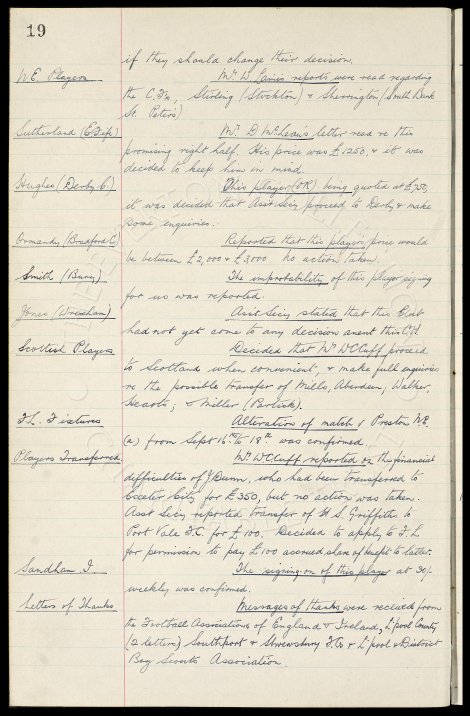 19
if they should change their decision.
N.E. Players Mr. D. Lewis reports were read regarding
the C.Fs, Stirling (Stockton) & Sherrington (South Bank
St. Peters)
Sutherland (E. Fife) Mr. D. McLeans letter read re this
promising right half. His price was £1250, & it was
decided to keep him in mind.
Hughes (Derby C.) This player (OR) being quoted at £750,
it was decided that Asst Secy proceed to Derby & make
some enquiries.
Ormandy (Bradford C) Reported that this players price would
be between £2,000 & £3000 no action taken.
Smith (Bury) The improbability of this player signing
for us was reported.
Jones (Wrexham) Asst Secy stated that this Club
had not yet come to any decision anent this C.H.
Scottish Players Decided that Mr WCCuff proceed
to Scotland when convenient, & make full enquiries
re the possible transfer of Mills, Aberdeen, Walker,
Hearts, & Miller (Partick).
F.L. Fixtures Alteration of match v Preston N.E.
(a) from Sept 16th to 18th was confirmed.
Players Transferred. Mr WCCuff reported on the financial
difficulties of J Dunn, who had been transferred to
Exeter City for £350, but no action was taken.
Asst Secy reported transfer of H S. Griffiths to
Port Vale F.C. for £100. Decided to apply to F.L
for permission to pay £100 accrued share of benefit to latter.
Sandham J. The signing-on of this player at 30/-
weekly, was confirmed.
Letters of Thanks Messages of thanks were received from
the Football Associations of England & Ireland, L'pool County
(2 letters) Southport & Shrewsbury F.Cs & L'pool & District
Boy Scouts Association.